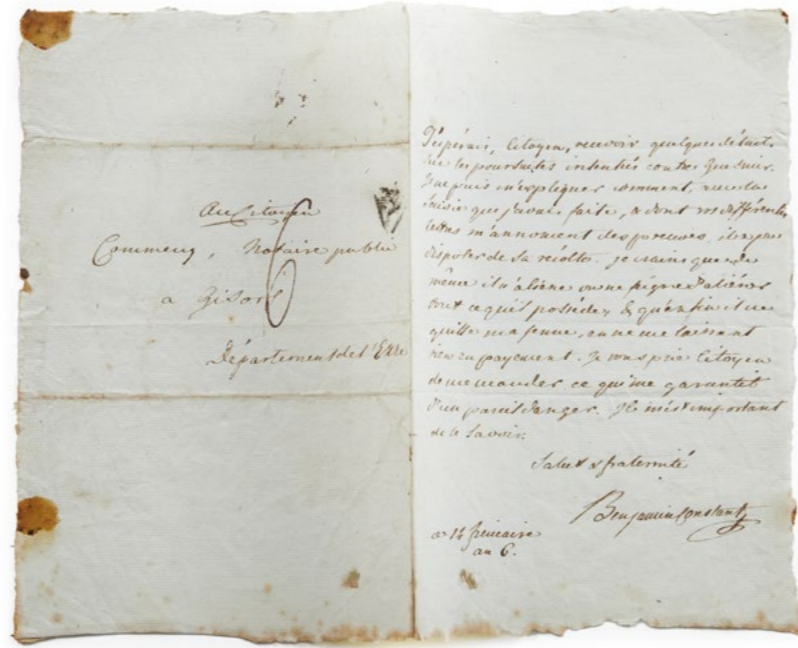 Au Citoyen
Commeny, Notaire public
a Gisors
Département de l'Eure
J'espérais, Citoyen, recevoir quelques détails
sur les poursuites intentées contre
Je ne puis m'expliquer comment, vu la
saisie que j'avais faite, & dont vos différentes
lettres m'annoncent des preuves, il a pu
disposer de sa récolte. je crains que de
même il n'aliène ou ne feigne d'aliéner
tout ce qu'il possède, & qu'enfin il ne
quitte ma ferme, en ne me laissant
rien en payement. Je vous prie Citoyen
de me mander ce qui me garantit
d'un pareil danger. Il m'est important
de le savoir.
Salut & fraternité
Benjamin Constant
ce 14 frimaire
an 6.